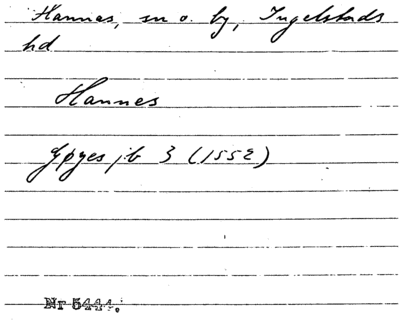 Hannas, sn o. by, Ingelstads
hd
Hannes
Gpges jb 3 (1552)
Nr 5444.